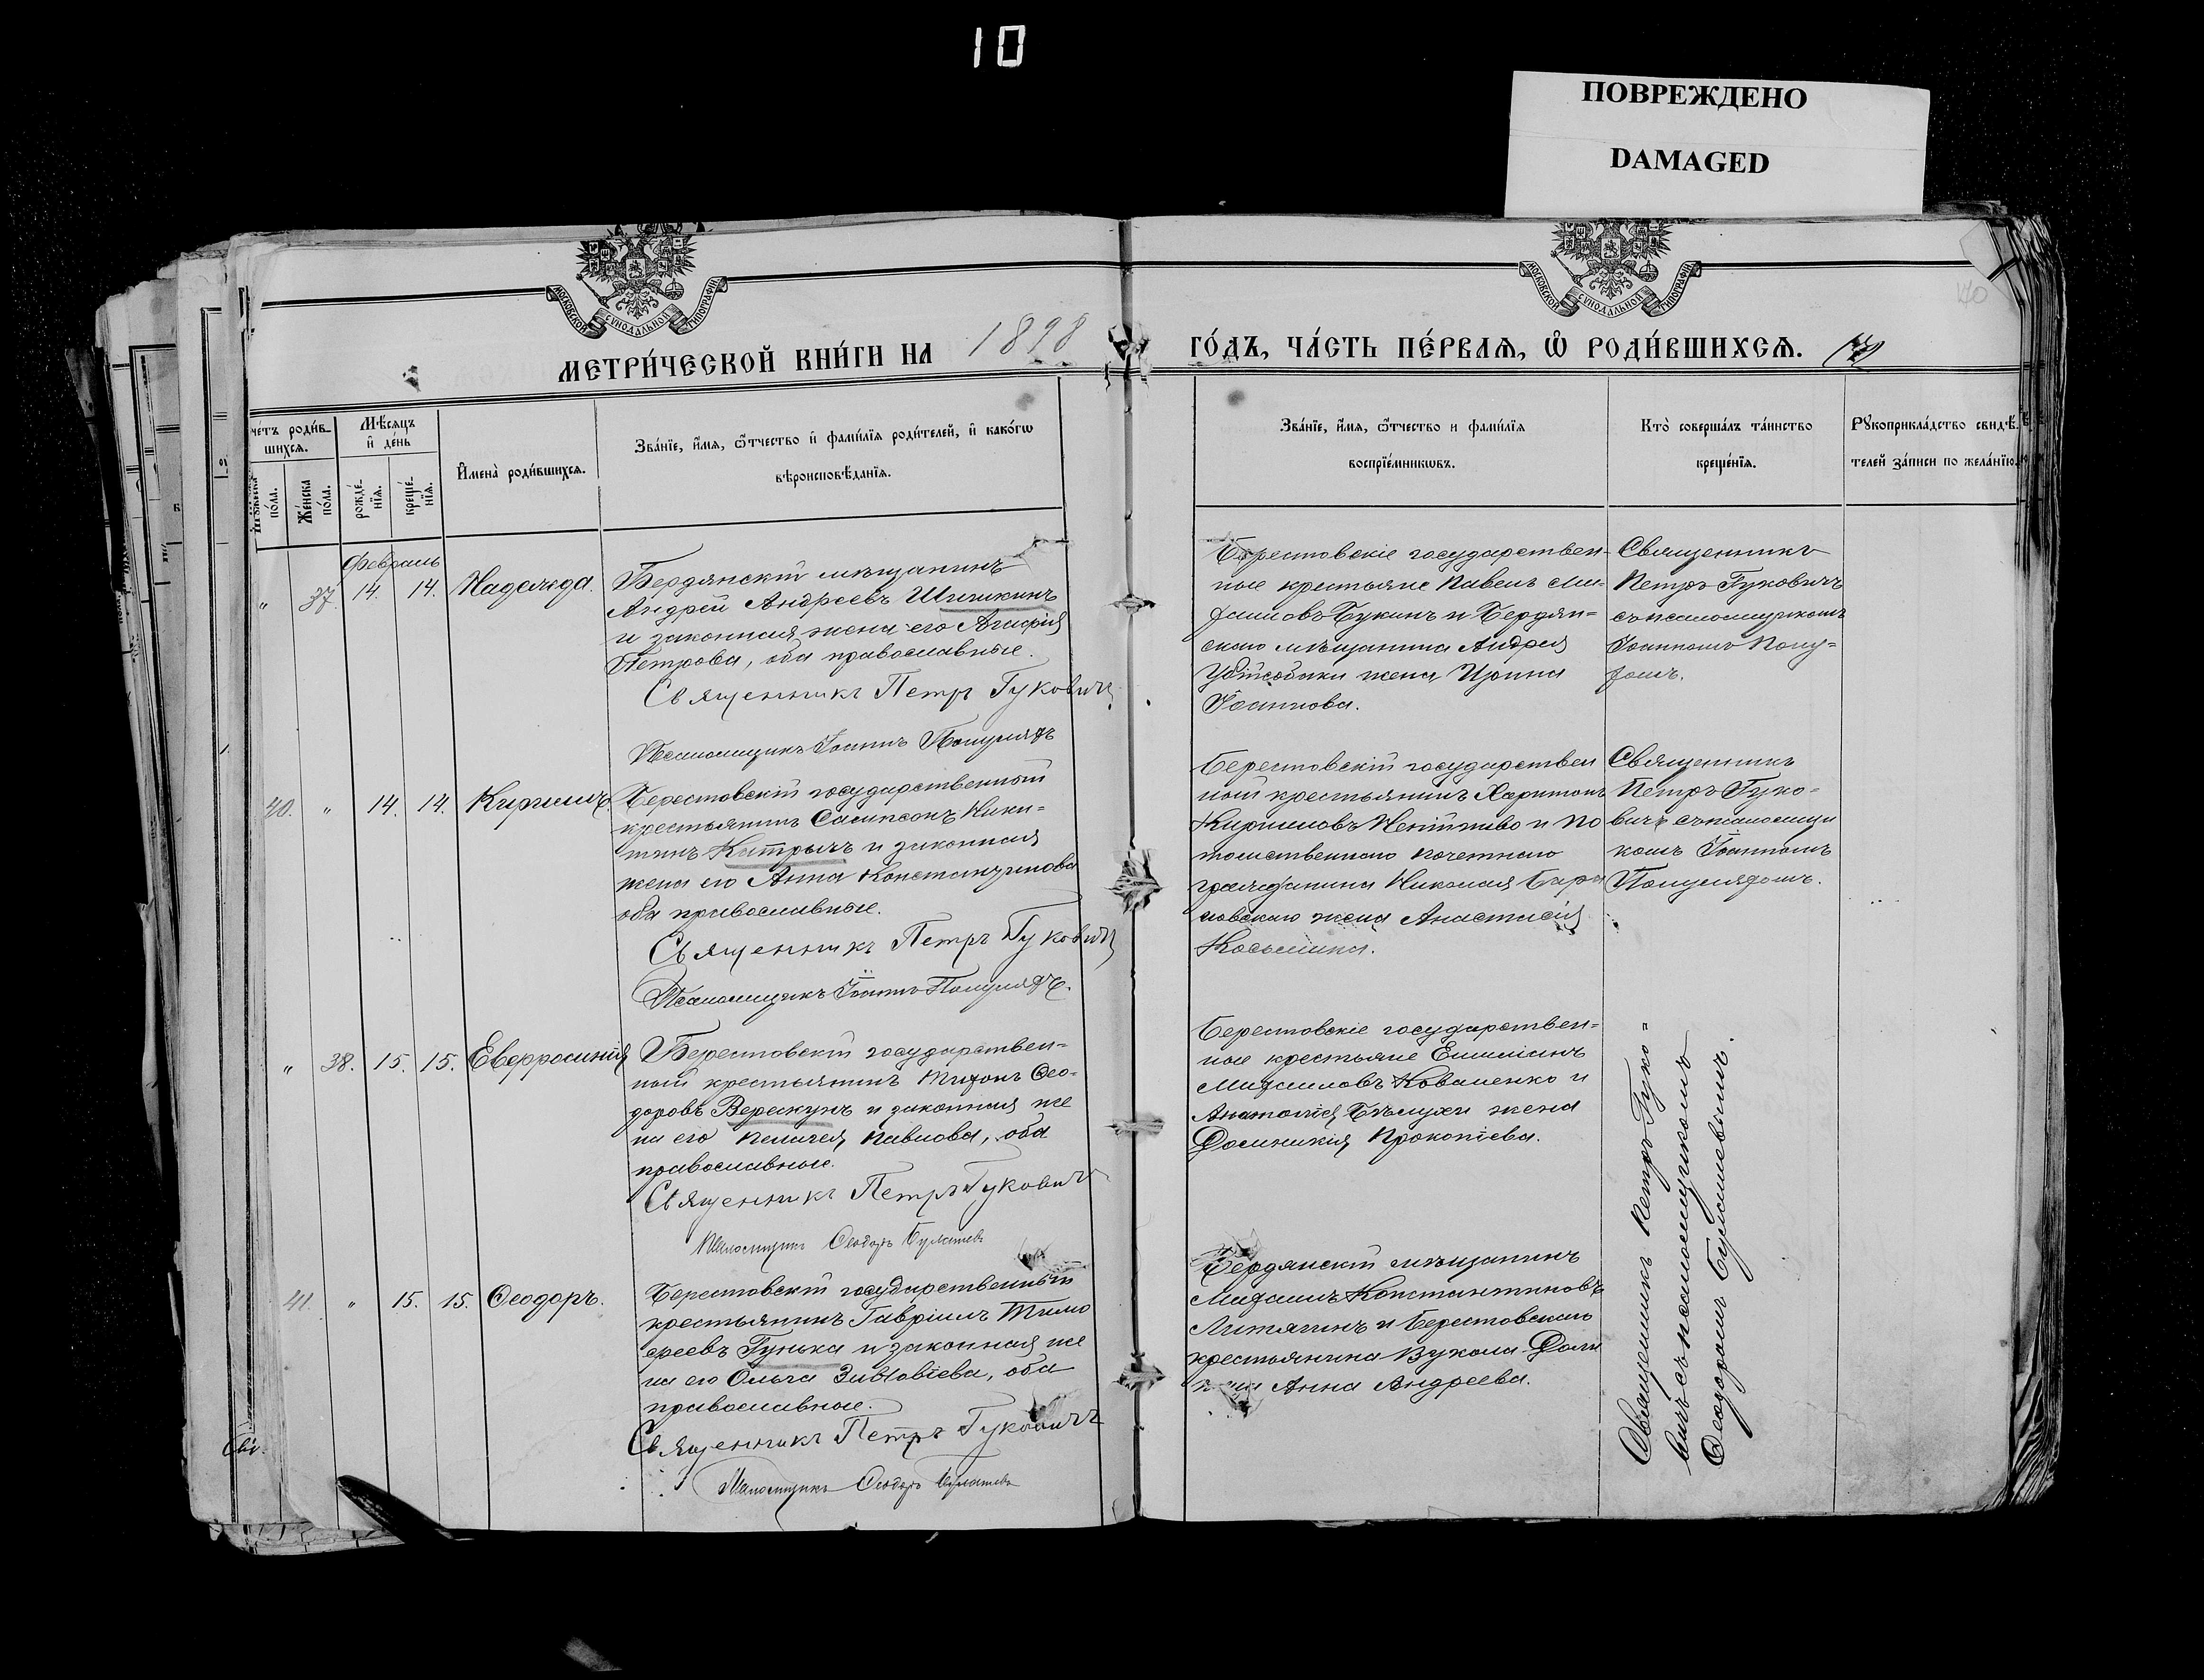 10
ПОВРЕЖДЕНО
DAMAGED
МОСКОВСКОЙ СУНОДАЛЬНОЙ ТИПОГРАФІИ
МОСКОВСКОЙ СУНОДАЛЬНОЙ ТИПОГРАФІИ
МЕТРИ́ЧЕСКОЙ КНИ́ГИ НА 1898 ГО́ДЪ, ЧА́СТЬ ПЕ́РВАѦ, Ѡ РОДИ́ВШИХСѦ.
че́тъ роди́в-
шихсѧ.
Мѣ́сяцъ
и де́нь
Же́нска
по́ла.
рожде́-
нїѧ.
креще́-
нїѧ.
И́мена̀ роди́вшихсѧ.
Зва́нїе, и́мѧ, ѻ́тчество и фами́лїѧ роди́телей, и како́гѡ
вѣроисповѣ́данїѧ.
Зва́нїе, и́мѧ, ѻ́тчество и фами́лїѧ
воспрїе́мникѡвъ.
Кто̀ соверша́лъ та́инство
креще́нїѧ.
Рꙋкоприкла́дство свидѣ́-
телей за́писи по жела́нїю.
Февраль
" 37. 14. 14. Надежда.
Бердянскій мѣщанинъ
Андрей Андреевъ Шишкинъ
и законная жена его Агафія
Петрова, оба православные.
Священникъ Петръ Гуковичъ
Псаломщикъ Іоаннъ
Берестовскіе государствен-
ные крестьяне Павелъ Ми-
хаиловъ Букинъ и Бердян-
скаго мѣщанина Андрея
жена Ирина
Іоаннова.
Священникъ
Петръ Гуковичъ
съ псаломщикомъ
Іоанномъ
40. " 14. 14. Кириллъ.
Берестовскій государственный
крестьянинъ Сампсонъ Ники-
тинъ и законная
жена его Анна Константинова
оба православные.
Священникъ Петръ Гуковичъ
Псаломщикъ Іоаннъ
Берестовскій государствен
ный крестьянинъ Харитонъ
Кирилловъ и по
томственнаго почетнаго
гражданина Николая
жена Анастасія
Косьмина.
Священникъ
Петръ Гуко-
вичъ съ псаломщи
комъ Іоанномъ
" 38. 15. 15. Евфросинія
Берестовскій государствен-
ный крестьянинъ Тихонъ Ѳео-
доровъ Верескунъ и законная же
на его Пелагея Павлова, оба
православные.
Священникъ Петръ Гуковичъ
Псаломщикъ Ѳеодоръ
Берестовскіе государствен-
ные крестьяне Емиліанъ
Михаиловъ Коваленко и
Анатолія Бѣлухи жена
Домникія Прокопіева.
Священникъ Петръ Гуко-
вичъ съ псаломщикомъ
Ѳеодоромъ
41. " 15. 15. Ѳеодоръ.
Берестовскій государственный
крестьянинъ Гавріилъ Тимо
феевъ Гунька и законная же
на его Ольга Зиновіева, оба
православные.
Священникъ Петръ Гуковичъ
Псаломщикъ Ѳеодоръ
Бердянскій мѣщанинъ
Михаилъ Константиновъ
Литягинъ и Берестовскаго
крестьянина Вукола
Анна Андреева.